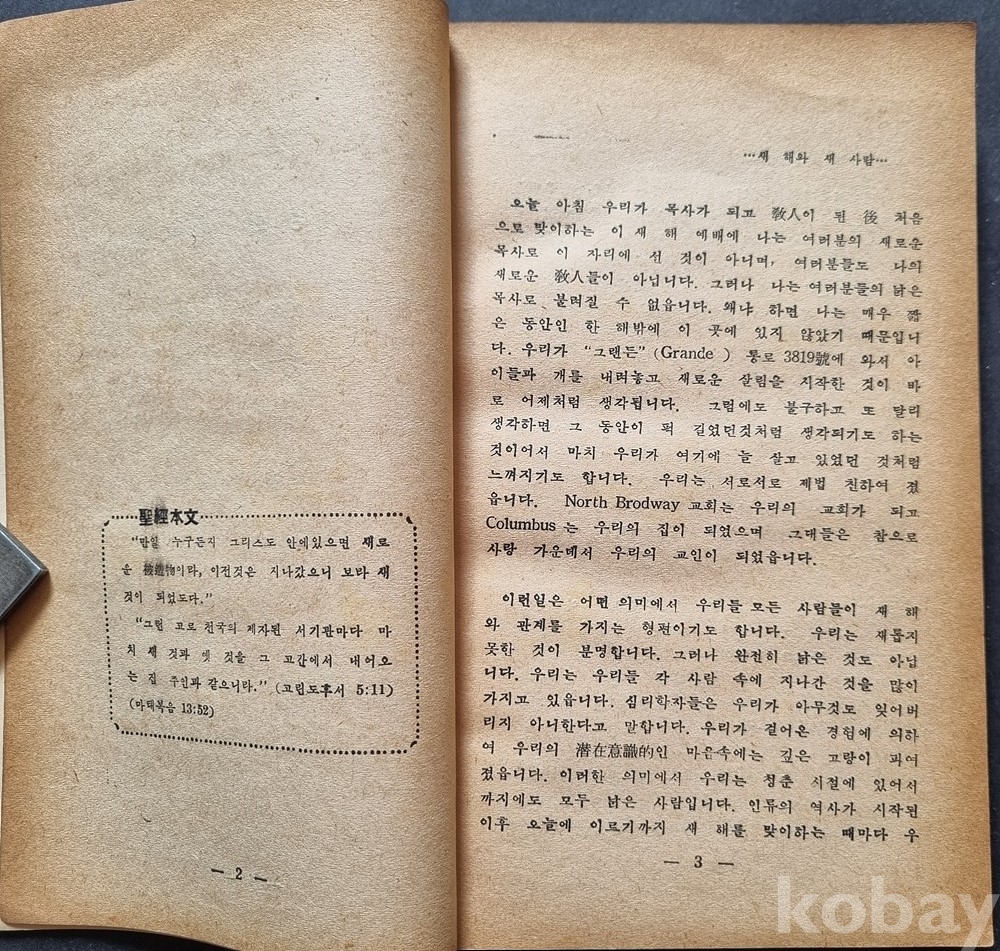 聖經本文
“만일 누구든지 그리스도 안에있으면 새로
운 被造物이라, 이전것은 지나갔으니 보라 새
것이 되었도다.”
“그럼 고로 천국의 제자된 서기관마다 마
치 새 것과 옛 것을 그 고간에서 내어오
는 집 주인과 같으니라.” (고립도후서 5:11)
(마태복음 13:52)
— 2 —
…새 해와 새 사람…
오늘 아침 우리가 목사가 되고 敎人이 된 後 처음
으로 맞이하는 이 새 해 예배에 나는 여러분의 새로운
목사로 이 자리에 선 것이 아니며, 여러분들도 나의
새로운 敎人들이 아닙니다. 그러나 나는 여러분들의 낡은
목사로 불려질 수 없읍니다. 왜냐 하면 나는 매우 짧
은 동안인 한 해밖에 이 곳에 있지 않았기 때문입니
다. 우리가 “그랜든” (Grande ) 통로 3819號에 와서 아
이들과 개를 내려놓고 새로운 살림을 시작한 것이 바
로 어제처럼 생각됩니다. 그럼에도 불구하고 또 달리
생각하면 그 동안이 퍽 길었던것처럼 생각되기도 하는
것이어서 마치 우리가 여기에 늘 살고 있었던 것처럼
느껴지기도 합니다. 우리는 서로서로 제법 친하여 졌
읍니다. North Brodway 교회는 우리의 교회가 되고
Columbus 는 우리의 집이 되었으며 그대들은 참으로
사랑 가운데서 우리의 교인이 되었읍니다.
이런일은 어떤 의미에서 우리들 모든 사람들이 새 해
와 관계를 가지는 형편이기도 합니다. 우리는 새롭지
못한 것이 분명합니다. 그러나 완전히 낡은 것도 아닙
니다. 우리는 우리들 각 사람 속에 지나간 것을 많이
가지고 있읍니다. 심리학자들은 우리가 아무것도 잊어버
리지 아니한다고 말합니다. 우리가 걸어온 경험에 의하
여 우리의 潜在意識的인 마음속에는 깊은 고랑이 파여
졌읍니다. 이러한 의미에서 우리는 청춘 시절에 있어서
까지에도 모두 낡은 사람입니다. 인류의 역사가 시작된
이후 오늘에 이르기까지 새 해를 맞이하는 때마다 우
— 3 —
kobay